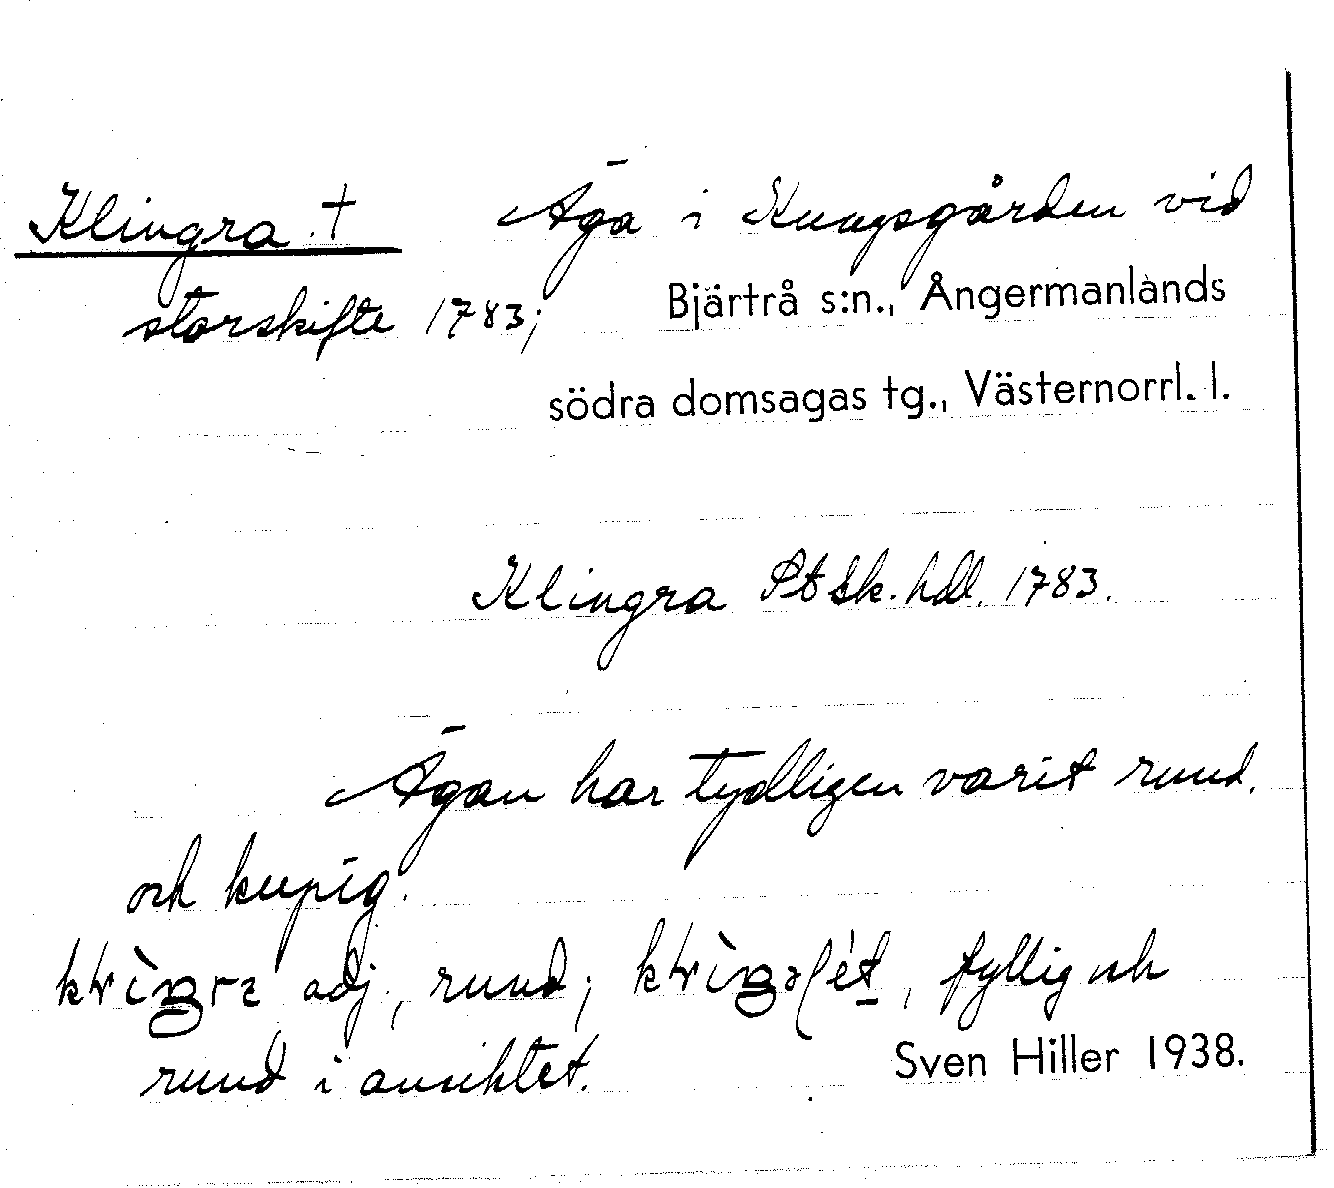 Klingra † Äga i Kungsgården vid
storskifte 1783; Bjärtrå s:n., Ångermanlands
södra domsagas tg., Västernorrl. l.
Klingra St Sk. hdl. 1783.
Ägan har tydligen varit rund
och kupig.
adj., rund; fyllig och
rund i ansiktet. Sven Hiller 1938.